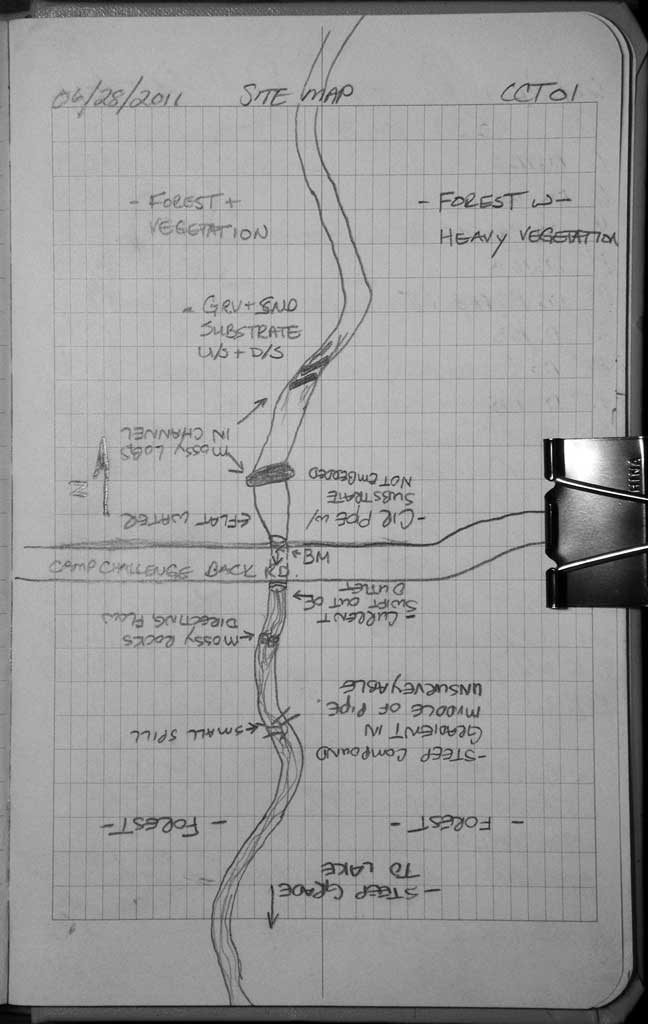 06/28/2011 SITE MAP CCT01
- FOREST +
VEGETATION
- FOREST W-
HEAVY VEGETATION
- GRV + SND
SUBSTRATE
U/S + D/S
MOSSY LOGS
IN CHANNEL
N
- CIR PIPE W/
SUBSTRATE
NOT EMBEDDED
FLAT WATER
BM
CAMP CHALLENGE BACK RD.
- CURRENT
SWIFT OUT OF
OUTLET
MOSSY ROCKS
DIRECTING FLOW
SMALL SPILL
- STEEP COMPOUND
GRADIENT IN
MIDDLE OF PIPE.
UNSURVEYABLE
- FOREST -
- FOREST -
- STEEP GRADE
TO LAKE
CHINA